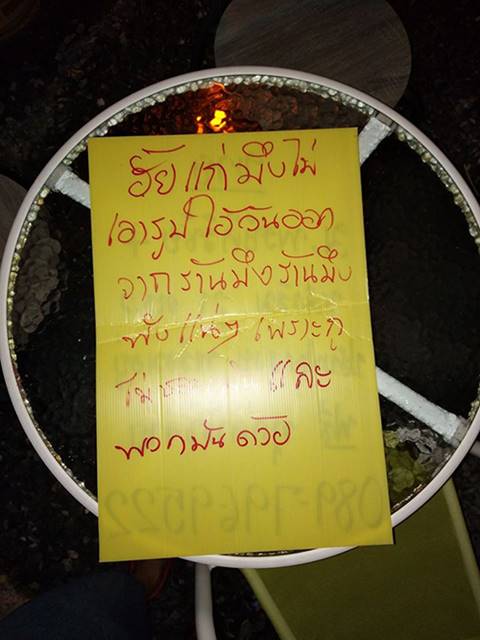 ฮัยแก่มึงไม่
เอารูปไอ้อ้วนออก
จากร้านมึงร้านมึง
พังแน่ๆ เพราะกู
ไม่ และ
พวกมันด้วย
089-7969522